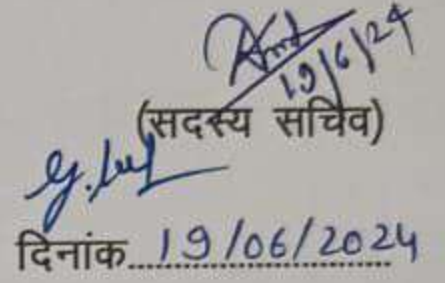 19/6/24
(सदस्य सचिव)
दिनांक 19/06/2024